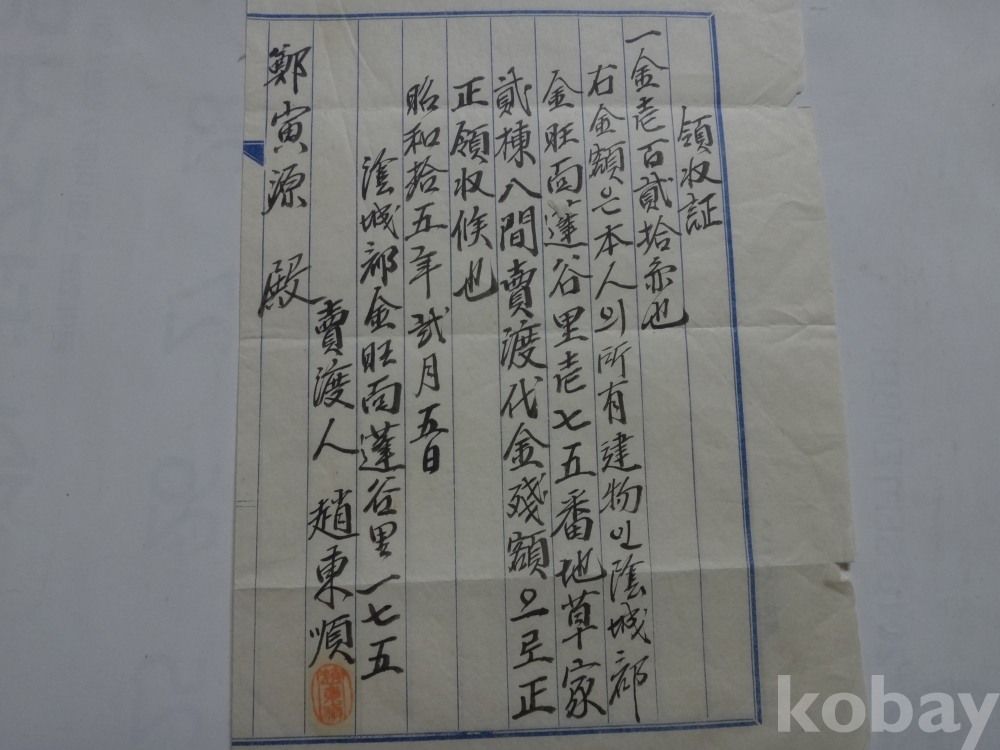 領收証
一金壱百貳拾円也
右金額은本人의所有建物인陰城郡
金旺面蓬谷里壱七五番地草家
貳棟八間賣渡代金殘額으로正
正領收候也
昭和拾五年貳月五日
陰城郡金旺面蓬谷里一七五
賣渡人 趙東順
鄭寅源 殿
kobay